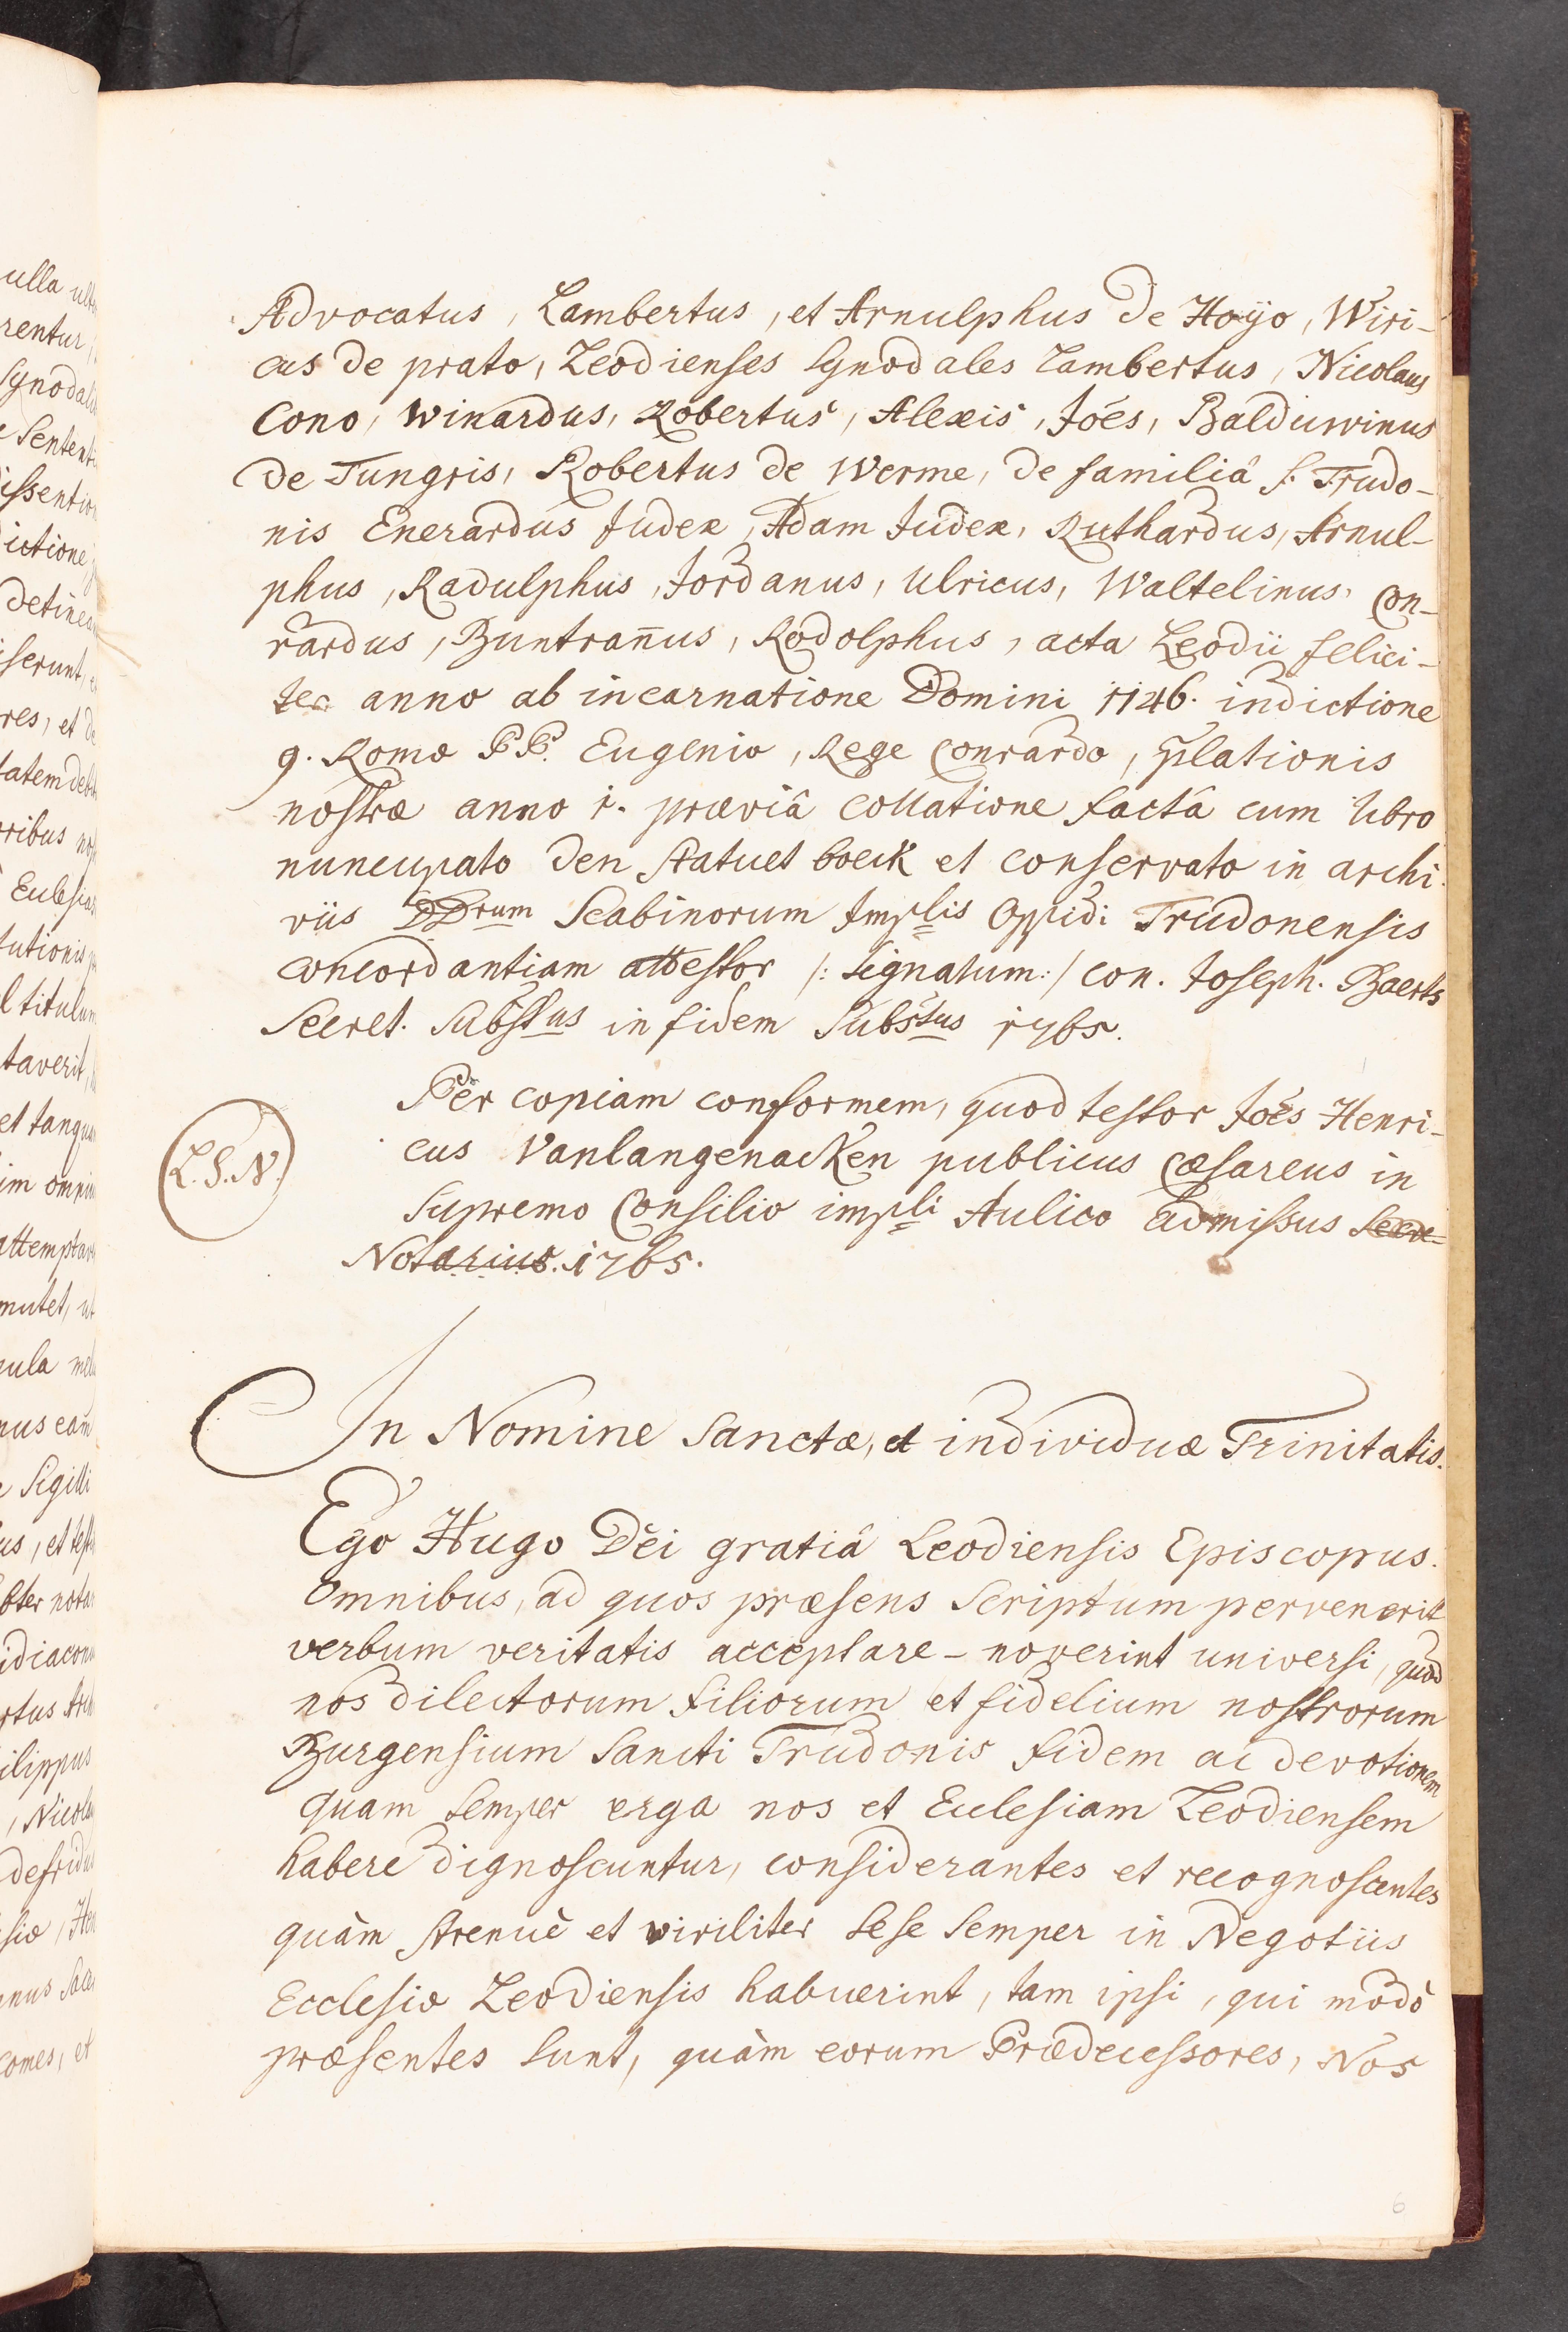 Advocatus, Lambertus, et Arnulphus de Hoÿo, Wiri-
cus de prato, Leodienses Synodales Lambertus, Nicolaus
Cono, Winardus, Robertus, Alexis, Joës, Balduwinus
de Tungris, Robertus de Werme, de familiâ S. Trudo-
nis Enerardus Judex, Adam Judex, Ruthardus, Arnul-
phus, Radulphus, Jordanus, Ulricus, Waltelinus, Con-
rardus, Buntrañus, Rodolphus, acta Leodii felici-
ter anno ab incarnatione Domini 1146. indictione
9. Romæ PP. Eugenio, Rege Conrardo, p̃lationis
nostræ anno 1. præviâ collatione factâ cum libro
nuncupato den Statuet boeck et conservato in archi-
viis DDrum Scabinorum Implis Oppidi Trudonensis
concordantiam attestor /: Signatum :/ con. Joseph. Baerts
Secret. Substus in fidem Substus 1765.
Per copiam conformem, quod testor Joës Henri-
cus Vanlangenacken publicus Cæsareus in
L.S.N.
Supremo Consilio impli Aulico admissus
Notarius. 1765.
In Nomine Sanctæ, et individuæ Trinitatis.
Ego Hugo Dei gratiâ Leodiensis Episcopus.
Omnibus, ad quos præsens Scriptum pervenerit
verbum veritatis acceptare - noverint universi, quod
nos dilectorum filiorum et fidelium nostrorum
Burgensium Sancti Trudonis fidem ac devotionem
quam Semper erga nos et Ecclesiam Leodiensem
habere dignoscuntur, considerantes et recognoscentes
quàm Strenuè et viriliter Sese Semper in Negotiis
Ecclesiæ Leodiensis habuerint, tam ipsi, qui modò
præsentes Sunt, quàm eorum Prædecessores, Nos
6